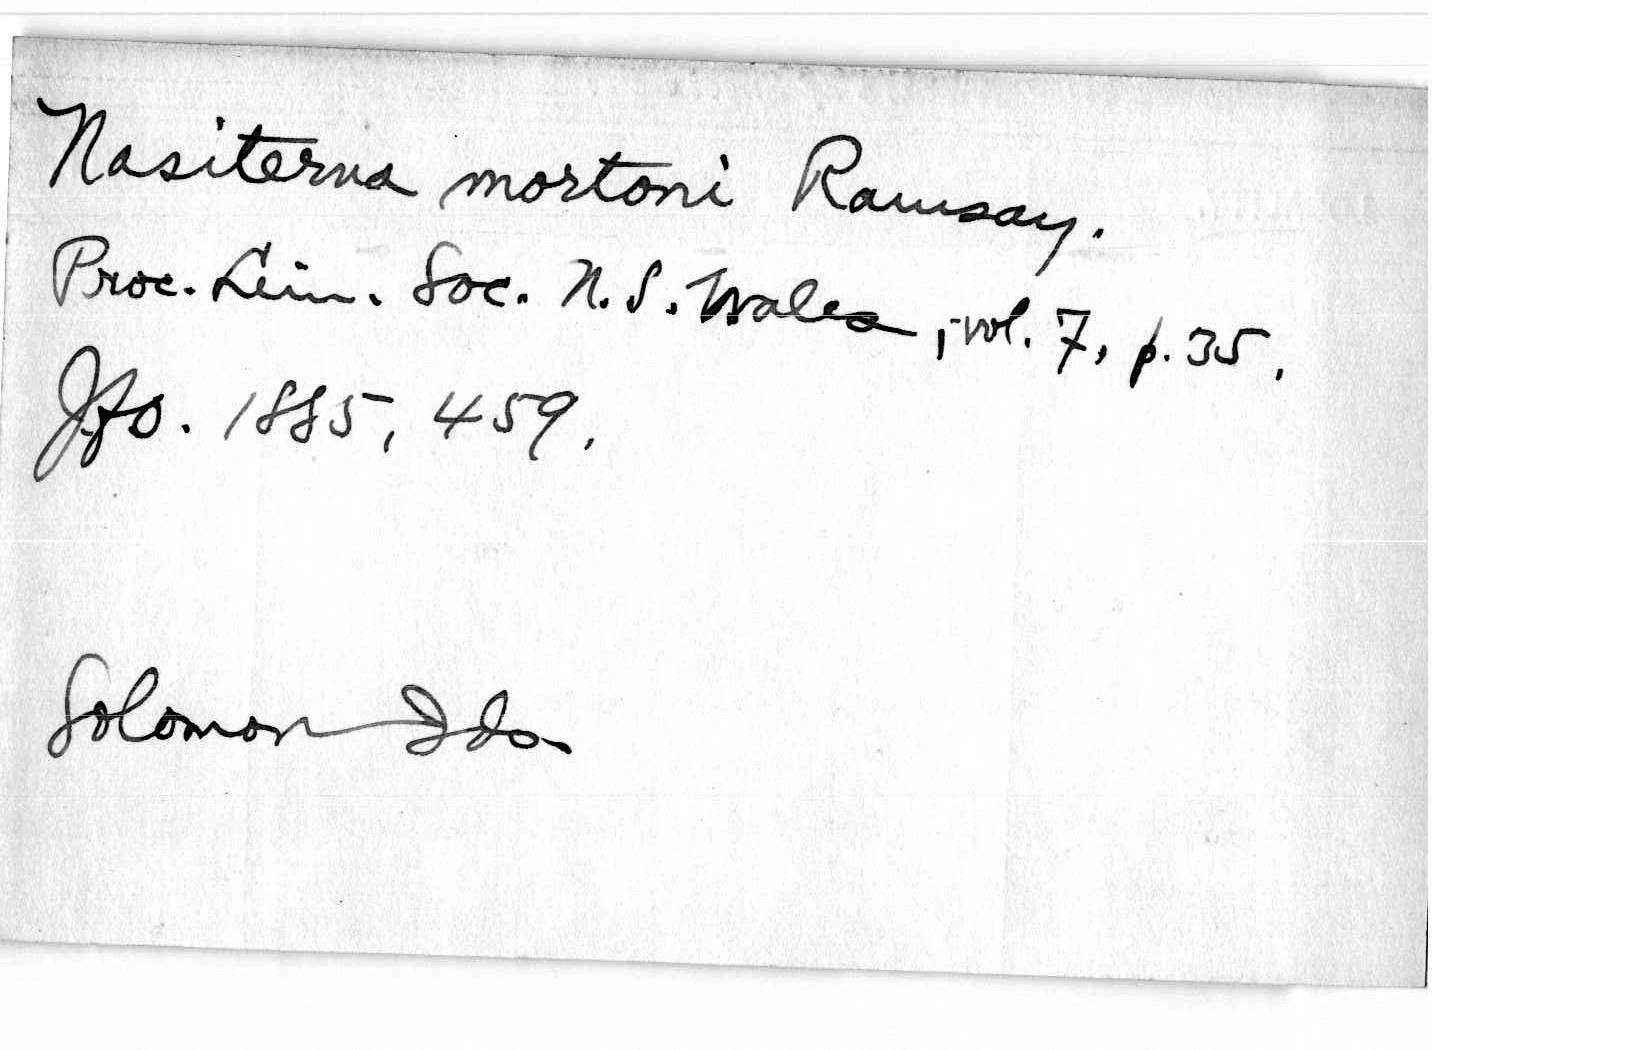 Nasiterna mortoni Ramsay.
Proc. Linn. Soc. N. S. Wales, vol. 7, p. 35.
JfO. 1885, 459.
Solomon Ids